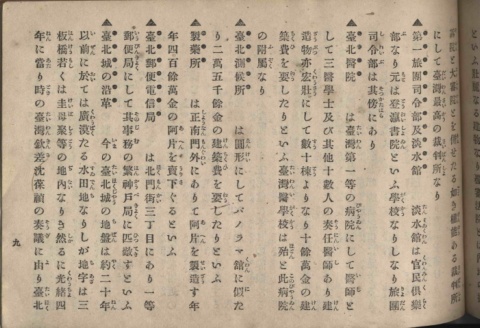 にして臺灣最高の裁判所なり
▲第一旅團司令部及淡水館　淡水館は官民倶樂
部なり元は登瀛書院といふ學校なりしなり旅團
司令部は其傍にあり
▲臺北醫院　は臺灣第一等の病院にして醫師と
して三醫學士及び其他十數人の奏任醫師あり建
造物亦宏壯にして數十棟よりなり十餘萬金の建
築費を要したりといふ臺灣醫學校は殆と此病院
の附屬なり
▲臺北測候所　は圓形にしてパノラマ舘に似た
り二萬五千餘金の建築費を要したりといふ
▲製藥所　は正南門外にありて阿片を製造す年
年四百餘萬金の阿片を賣下ぐるといふ
▲臺北郵便電信局　は北門街三丁目にあり一等
郵便局にして其事務の繁神戸局に匹敵すといふ
▲臺北城の沿革　今の臺北城の地盤は約二十年
以前に於ては廣漠たる水田地なりしが地字は三
板橋若くは圭母聚等の地内なり然るに光緒四
年に當り時の臺灣欽差沈葆禎の奏議に由り臺北
九